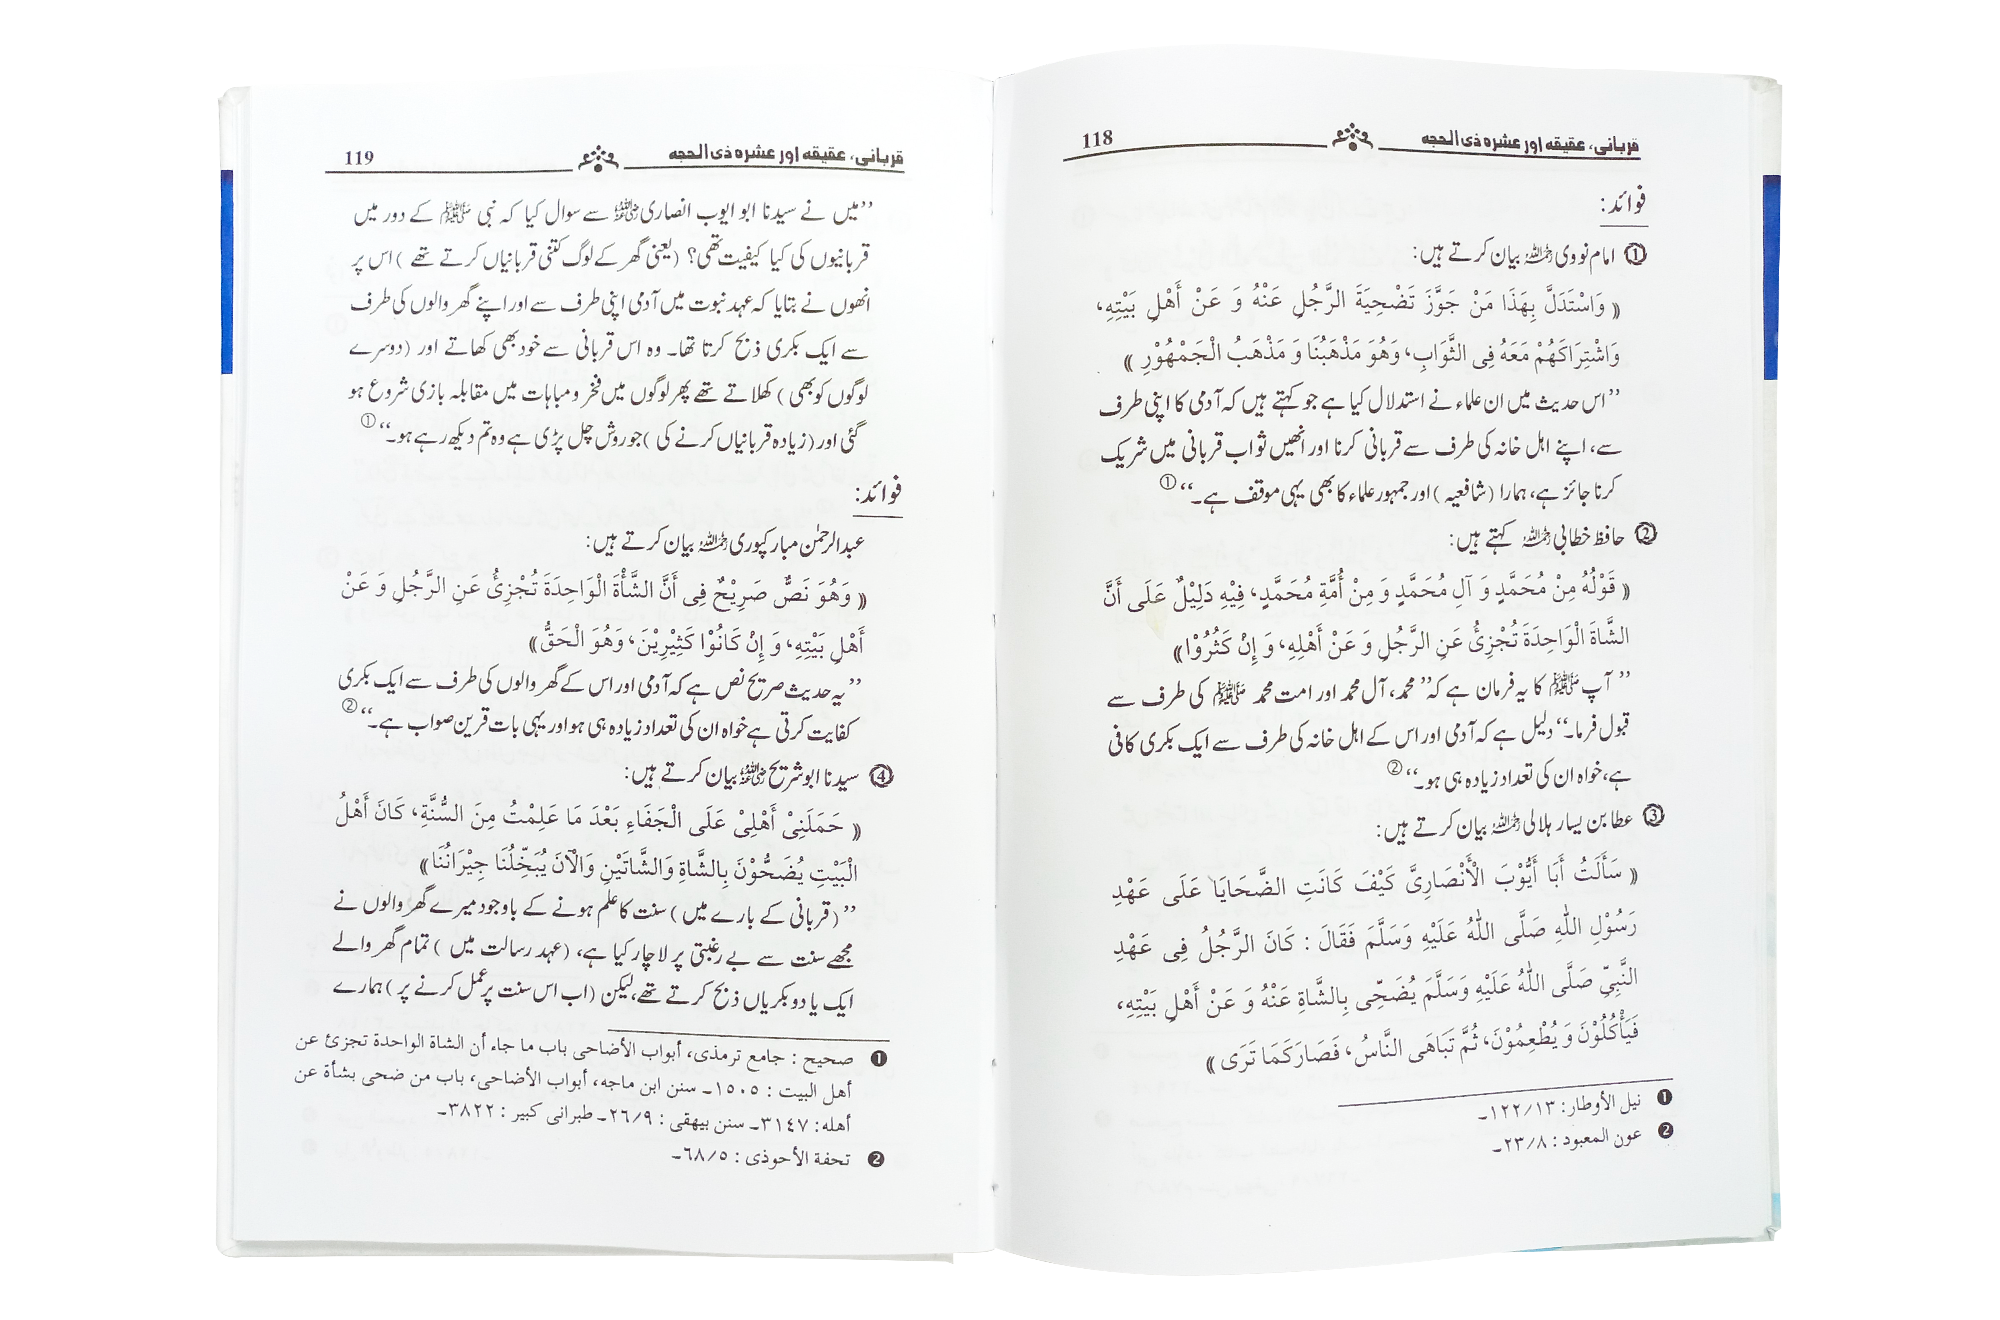 قربانی، عقیقه اور عشرہ ذی الحجہ 118
فوائد:
① امام نووی رحمہ اللہ بیان کرتے ہیں:
(( وَاسْتَدَلَّ بِهَذَا مَنْ جَوَّزَ تَضْحِيَةَ الرَّجُلِ عَنْهُ وَ عَنْ أَهْلِ بَيْتِهِ،
وَاشْتِرَاكَهُمْ مَعَهُ فِى الثَّوَابِ، وَهُوَ مَذْهَبُنَا وَ مَذْهَبُ الْجَمْهُوْرِ ))
’’اس حدیث میں ان علماء نے استدلال کیا ہے جو کہتے ہیں کہ آدمی کا اپنی طرف
سے، اپنے اہل خانہ کی طرف سے قربانی کرنا اور انھیں ثواب قربانی میں شریک
کرنا جائز ہے، ہمارا (شافعیہ) اور جمہور علماء کا بھی یہی موقف ہے۔‘‘ ①
② حافظ خطابی رحمہ اللہ کہتے ہیں:
(( قَوْلُهُ مِنْ مُحَمَّدٍ وَ آلِ مُحَمَّدٍ وَ مِنْ أُمَّةِ مُحَمَّدٍ، فِيْهِ دَلِيْلٌ عَلَى أَنَّ
الشَّاةَ الْوَاحِدَةَ تُجْزِئُ عَنِ الرَّجُلِ وَ عَنْ أَهْلِهِ، وَ إِنْ كَثُرُوْا))
’’آپ ﷺ کا یہ فرمان ہے کہ ’’محمد، آل محمد اور امت محمد ﷺ کی طرف سے
قبول فرما۔‘‘ دلیل ہے کہ آدمی اور اس کے اہل خانہ کی طرف سے ایک بکری کافی
ہے، خواہ ان کی تعداد زیادہ ہی ہو۔‘‘ ②
③ عطا بن یسار ہلالی رحمہ اللہ بیان کرتے ہیں:
(( سَأَلَتُ أَبَا أَيُّوْبَ الْأَنْصَارِىَّ كَيْفَ كَانَتِ الضَّحَايَا عَلَى عَهْدِ
رَسُوْلِ اللهِ صَلَّى اللهُ عَلَيْهِ وَسَلَّمَ فَقَالَ : كَانَ الرَّجُلُ فِى عَهْدِ
النَّبِيِّ صَلَّى اللهُ عَلَيْهِ وَسَلَّمَ يُضَحِّى بِالشَّاةِ عَنْهُ وَ عَنْ أَهْلِ بَيْتِهِ،
فَيَأْكُلُوْنَ وَ يُطْعِمُوْنَ، ثُمَّ تَبَاهَى النَّاسُ، فَصَارَ كَمَا تَرَى ))
❶ نيل الأوطار: ١٣/١٢٢۔
❷ عون المعبود : ٨/٢٣۔
قربانی، عقیقه اور عشرہ ذی الحجہ 119
’’میں نے سیدنا ابو ایوب انصاری رضی اللہ عنہ سے سوال کیا کہ نبی ﷺ کے دور میں
قربانیوں کی کیا کیفیت تھی؟ (یعنی گھر کے لوگ کتنی قربانیاں کرتے تھے) اس پر
انھوں نے بتایا کہ عہد نبوت میں آدمی اپنی طرف سے اور اپنے گھر والوں کی طرف
سے ایک بکری ذبح کرتا تھا۔ وہ اس قربانی سے خود بھی کھاتے اور (دوسرے
لوگوں کو بھی) کھلاتے تھے پھر لوگوں میں فخر و مباہات میں مقابلہ بازی شروع ہو
گئی اور (زیادہ قربانیاں کرنے کی) جو روش چل پڑی ہے وہ تم دیکھ رہے ہو۔‘‘ ①
فوائد:
عبدالرحمٰن مبارکپوری رحمہ اللہ بیان کرتے ہیں:
(( وَهُوَ نَصٌّ صَرِيْحٌ فِى أَنَّ الشَّأْةَ الْوَاحِدَةَ تُجْزِئُ عَنِ الرَّجُلِ وَ عَنْ
أَهْلِ بَيْتِهِ، وَ إِنْ كَانُوْا كَثِيْرِيْنَ، وَهُوَ الْحَقُّ))
’’یہ حدیث صریح نص ہے کہ آدمی اور اس کے گھر والوں کی طرف سے ایک بکری
کفایت کرتی ہے خواہ ان کی تعداد زیادہ ہی ہو اور یہی بات قرین صواب ہے۔‘‘ ②
④ سیدنا ابو شریح رضی اللہ عنہ بیان کرتے ہیں:
(( حَمَلَنِىْ أَهْلِىْ عَلَى الْجَفَاءِ بَعْدَ مَا عَلِمْتُ مِنَ السُّنَّةِ، كَانَ أَهْلُ
الْبَيْتِ يُضَحُّوْنَ بِالشَّاةِ وَالشَّاتَيْنِ وَالْآنَ يُبَخِّلُنَا جِيْرَانُنَا))
’’(قربانی کے بارے میں) سنت کا علم ہونے کے باوجود میرے گھر والوں نے
مجھے سنت سے بے رغبتی پر لاچار کیا ہے، (عہد رسالت میں) تمام گھر والے
ایک یا دو بکریاں ذبح کرتے تھے، لیکن (اب اس سنت پر عمل کرنے پر) ہمارے
❶ صحيح : جامع ترمذى، أبواب الأضاحى باب ما جاء أن الشاة الواحدة تجزئ عن
أهل البيت : ١٥٠٥۔ سنن ابن ماجه، أبواب الأضاحى، باب من ضحى بشأة عن
أهله: ٣١٤٧۔ سنن بيهقى : ٩/٢٦۔ طبرانى كبير : ٣٨٢٢۔
❷ تحفة الأحوذى : ٥/٦٨۔